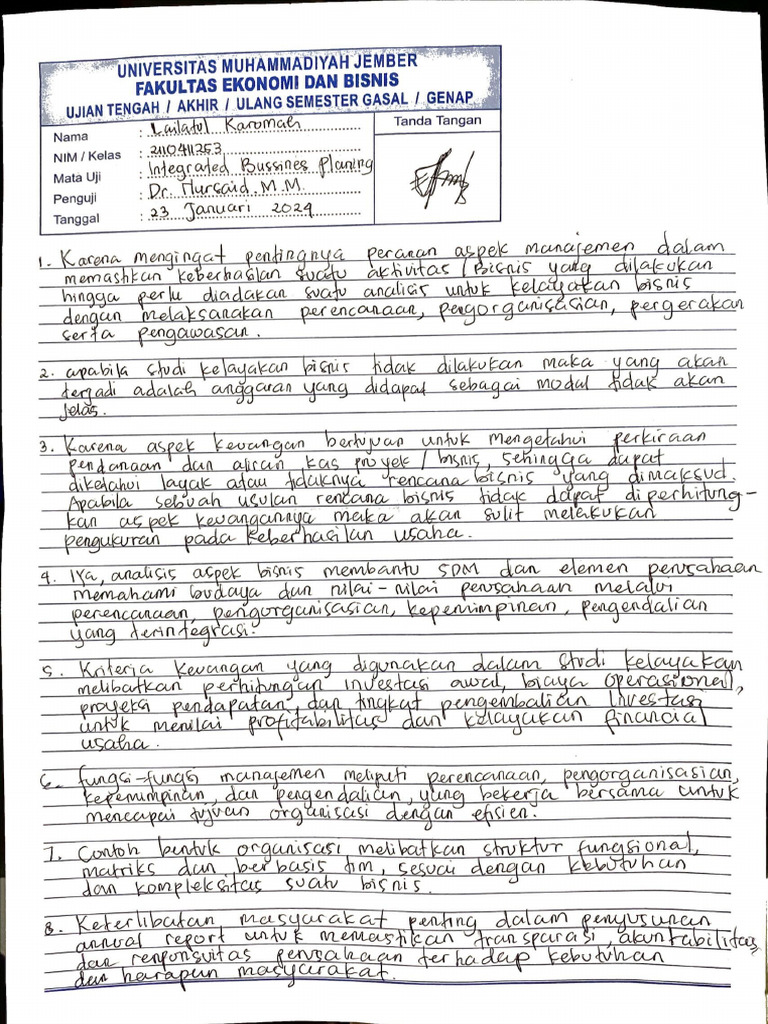 UNIVERSITAS MUHAMMADIYAH JEMBER
FAKULTAS EKONOMI DAN BISNIS
UJIAN TENGAH / AKHIR / ULANG SEMESTER GASAL / GENAP
Nama : Lailatul Karomah
NIM / Kelas : 2110411253
Mata Uji : Integrated Bussines Planing
Penguji : Dr. Nursaid, M.M.
Tanggal : 23 Januari 2024
Tanda Tangan
1. Karena mengingat pentingnya peranan aspek manajemen dalam
memastikan keberhasilan suatu aktivitas / Bisnis yang dilakukan
hingga perlu diadakan suatu analisis untuk kelayakan bisnis
dengan melaksanakan perencanaan, pengorganisasian, pergerakan
serta pengawasan.
2. apabila studi kelayakan bisnis tidak dilakukan maka yang akan
terjadi adalah anggaran yang didapat sebagai modal tidak akan
jelas.
3. Karena aspek keuangan bertujuan untuk mengetahui perkiraan
pendanaan dan aliran kas proyek / bisnis, sehingga dapat
diketahui layak atau tidaknya rencana bisnis yang dimaksud.
Apabila sebuah usulan rencana bisnis tidak dapat diperhitung-
kan aspek keuangannya maka akan sulit melakukan
pengukuran pada keberhasilan usaha.
4. Iya, analisis aspek bisnis membantu SDM dan elemen perusahaan
memahami budaya dan nilai-nilai perusahaan melalui
perencanaan, pengorganisasian, kepemimpinan, pengendalian
yang terintegrasi.
5. Kriteria keuangan yang digunakan dalam studi kelayakan
melibatkan perhitungan investasi awal, biaya operasional,
proyeksi pendapatan, dan tingkat pengembalian investasi
untuk menilai profitabilitas dan kelayakan financial
usaha.
6. fungsi-fungsi manajemen meliputi perencanaan, pengorganisasian,
kepemimpinan, dan pengendalian, yang bekerja bersama untuk
mencapai tujuan organisasi dengan efisien.
7. Contoh bentuk organisasi melibatkan struktur fungsional,
matriks dan berbasis tim, sesuai dengan kebutuhan
dan kompleksitas suatu bisnis.
8. Keterlibatan masyarakat penting dalam penyusunan
annual report untuk memastikan transparasi, akuntabilitas
dan responsvitas perusahaan terhadap kebutuhan
dan harapan masyarakat.